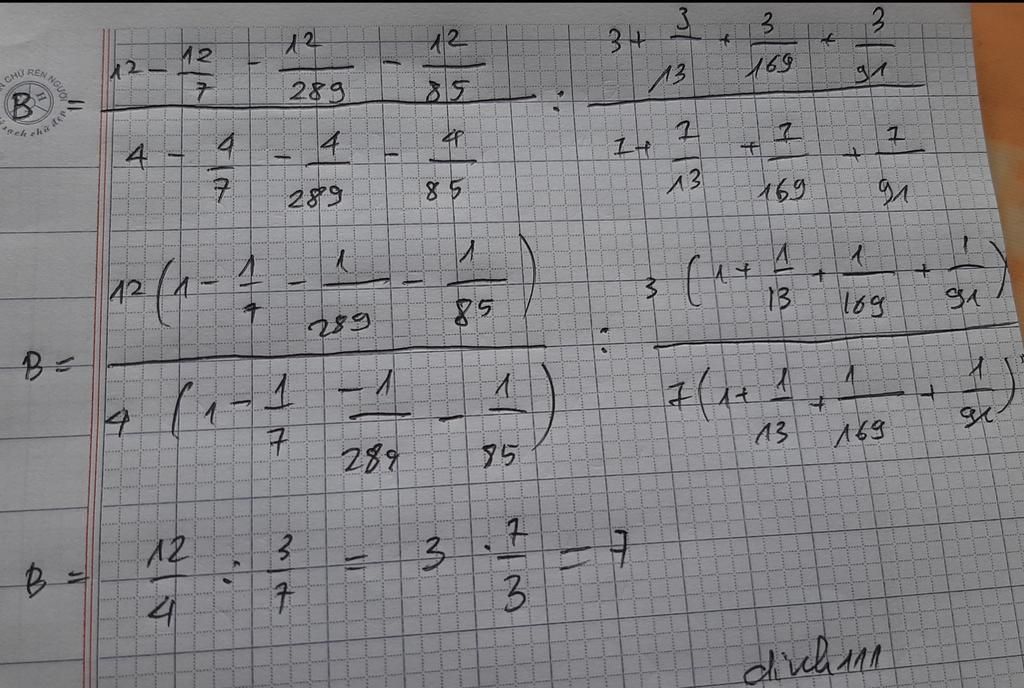 B = (12 - 12/7 - 12/289 - 12/85) / (4 - 4/7 - 4/289 - 4/85) : (3 + 3/13 + 3/169 + 3/91) / (7 + 7/13 + 7/169 + 7/91)
B = 12(1 - 1/7 - 1/289 - 1/85) / 4(1 - 1/7 - 1/289 - 1/85) : 3(1 + 1/13 + 1/169 + 1/91) / 7(1 + 1/13 + 1/169 + 1/91)
B = 12/4 ÷ 3/7 = 3 . 7/3 = 7
dinh111